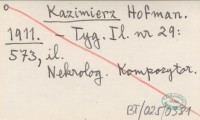 Kazimierz Hofman.
1911. – Tyg. Il. nr 29:
573, il.
Nekrolog. Kompozytor.
BJ/025/0331